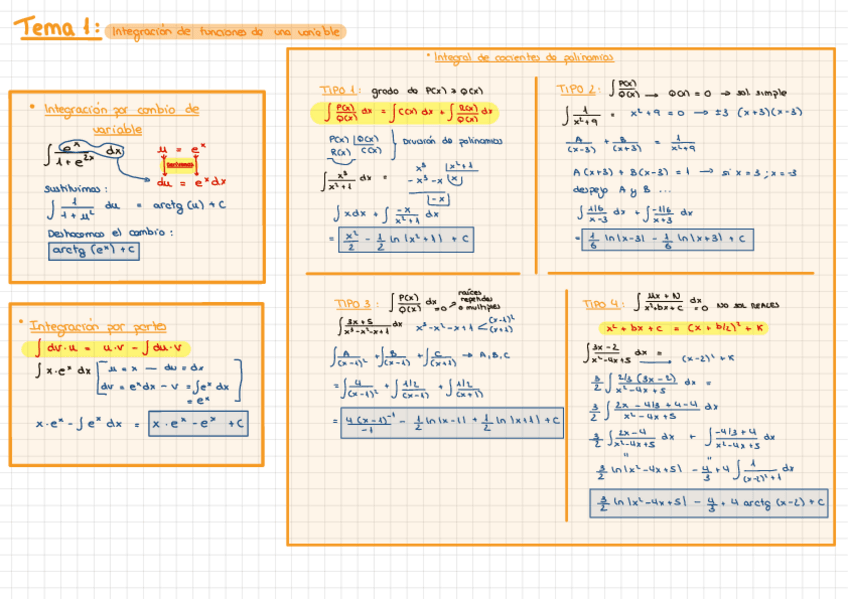 Tema 1: Integración de funciones de una variable
* Integración por cambio de
variable
∫ e^x / 1+e^2x dx
u = e^x
derivamos
du = e^x dx
sustituimos:
∫ 1 / 1+u² du = arctg(u) + C
Deshacemos el cambio:
arctg(e^x) + C
* Integración por partes
∫ dv·u = u·v - ∫ du·v
∫ x·e^x dx
u = x — du = dx
dv = e^x dx - v = ∫ e^x dx
= e^x
x·e^x - ∫ e^x dx = x·e^x - e^x + C
* Integral de cocientes de polinomios
TIPO 1: grado de P(x) ≥ Q(x)
∫ P(x)/Q(x) dx = ∫ C(x) dx + ∫ R(x)/Q(x) dx
P(x) | Q(x)
R(x) C(x)
División de polinomios
∫ x³/x²+1 dx =
x³ | x²+1
-x³-x | x
-x
∫ x dx + ∫ -x/x²+1 dx
= x²/2 - 1/2 ln|x²+1| + C
TIPO 2: ∫ P(x)/Q(x) → Q(x) = 0 → sol simple
∫ 1/x²+9 = x²+9 = 0 → ±3 (x+3)(x-3)
A/(x-3) + B/(x+3) = 1/x²+9
A(x+3) + B(x-3) = 1 → si x=3; x=-3
despejo A y B ...
∫ 1/6 / x-3 dx + ∫ -1/6 / x+3 dx
= 1/6 ln|x-3| - 1/6 ln|x+3| + C
TIPO 3: ∫ P(x)/Q(x) dx
=0 → raíces
repetidas
o múltiples
∫ 3x+5 / x³-x²-x+1 dx x³-x²-x+1 < (x-1)²
(x+1)
∫ A/(x-1)² + ∫ B/(x-1) + ∫ C/(x+1) → A, B, C
= ∫ 4/(x-1)² + ∫ 1/2 / (x-1) + ∫ 1/2 / (x+1)
= 4(x-1)^-1 / -1 - 1/2 ln|x-1| + 1/2 ln|x+1| + C
TIPO 4: ∫ Mx+N / x²+bx+c dx = 0 NO SOL REALES
x² + bx + c = (x + b/2)² + K
∫ 3x-2 / x²-4x+5 dx = (x-2)² + K
3/2 ∫ 2/3 (3x-2) / x²-4x+5 dx =
3/2 ∫ 2x - 4/3 + 4 - 4 / x²-4x+5 dx
3/2 ∫ 2x-4 / x²-4x+5 dx + ∫ -4/3 + 4 / x²-4x+5 dx
3/2 ln|x²-4x+5| - 4/3 + 4 ∫ 1/(x-2)²+1 dx
3/2 ln|x²-4x+5| - 4/3 + 4 arctg(x-2) + C